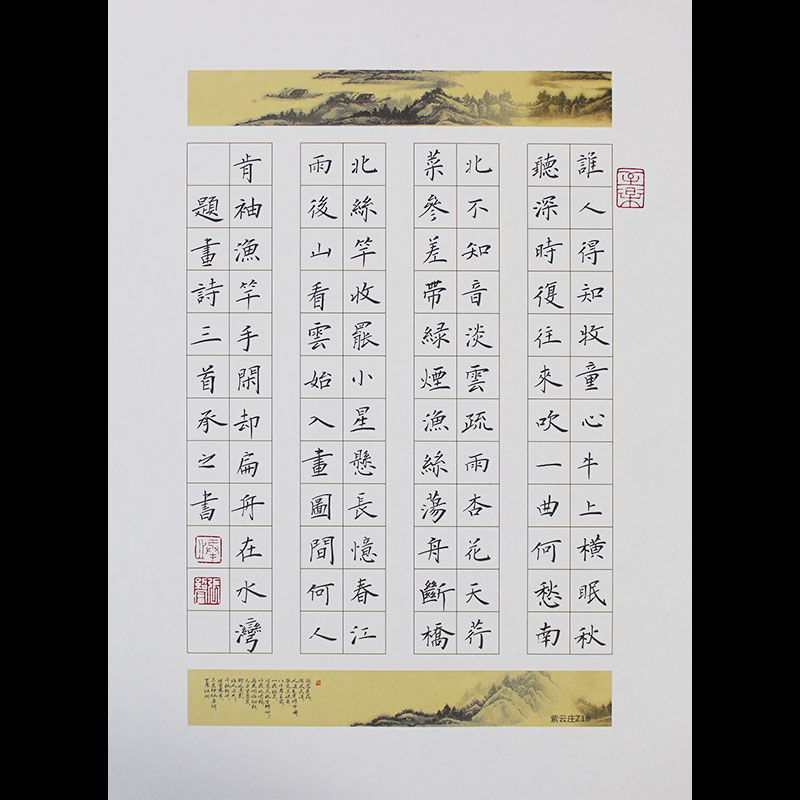 誰人得知牧童心牛上橫眠秋
聽深時復往來吹一曲何愁南
北不知音淡雲疏雨杏花天荇
菜參差帶緑煙漁絲蕩舟斷橋
北絲竿收罷小星懸長憶春江
雨後山看雲始入畫圖間何人
肯袖漁竿手閑却扁舟在水灣
題畫詩三首承之書
紫云庄Z18